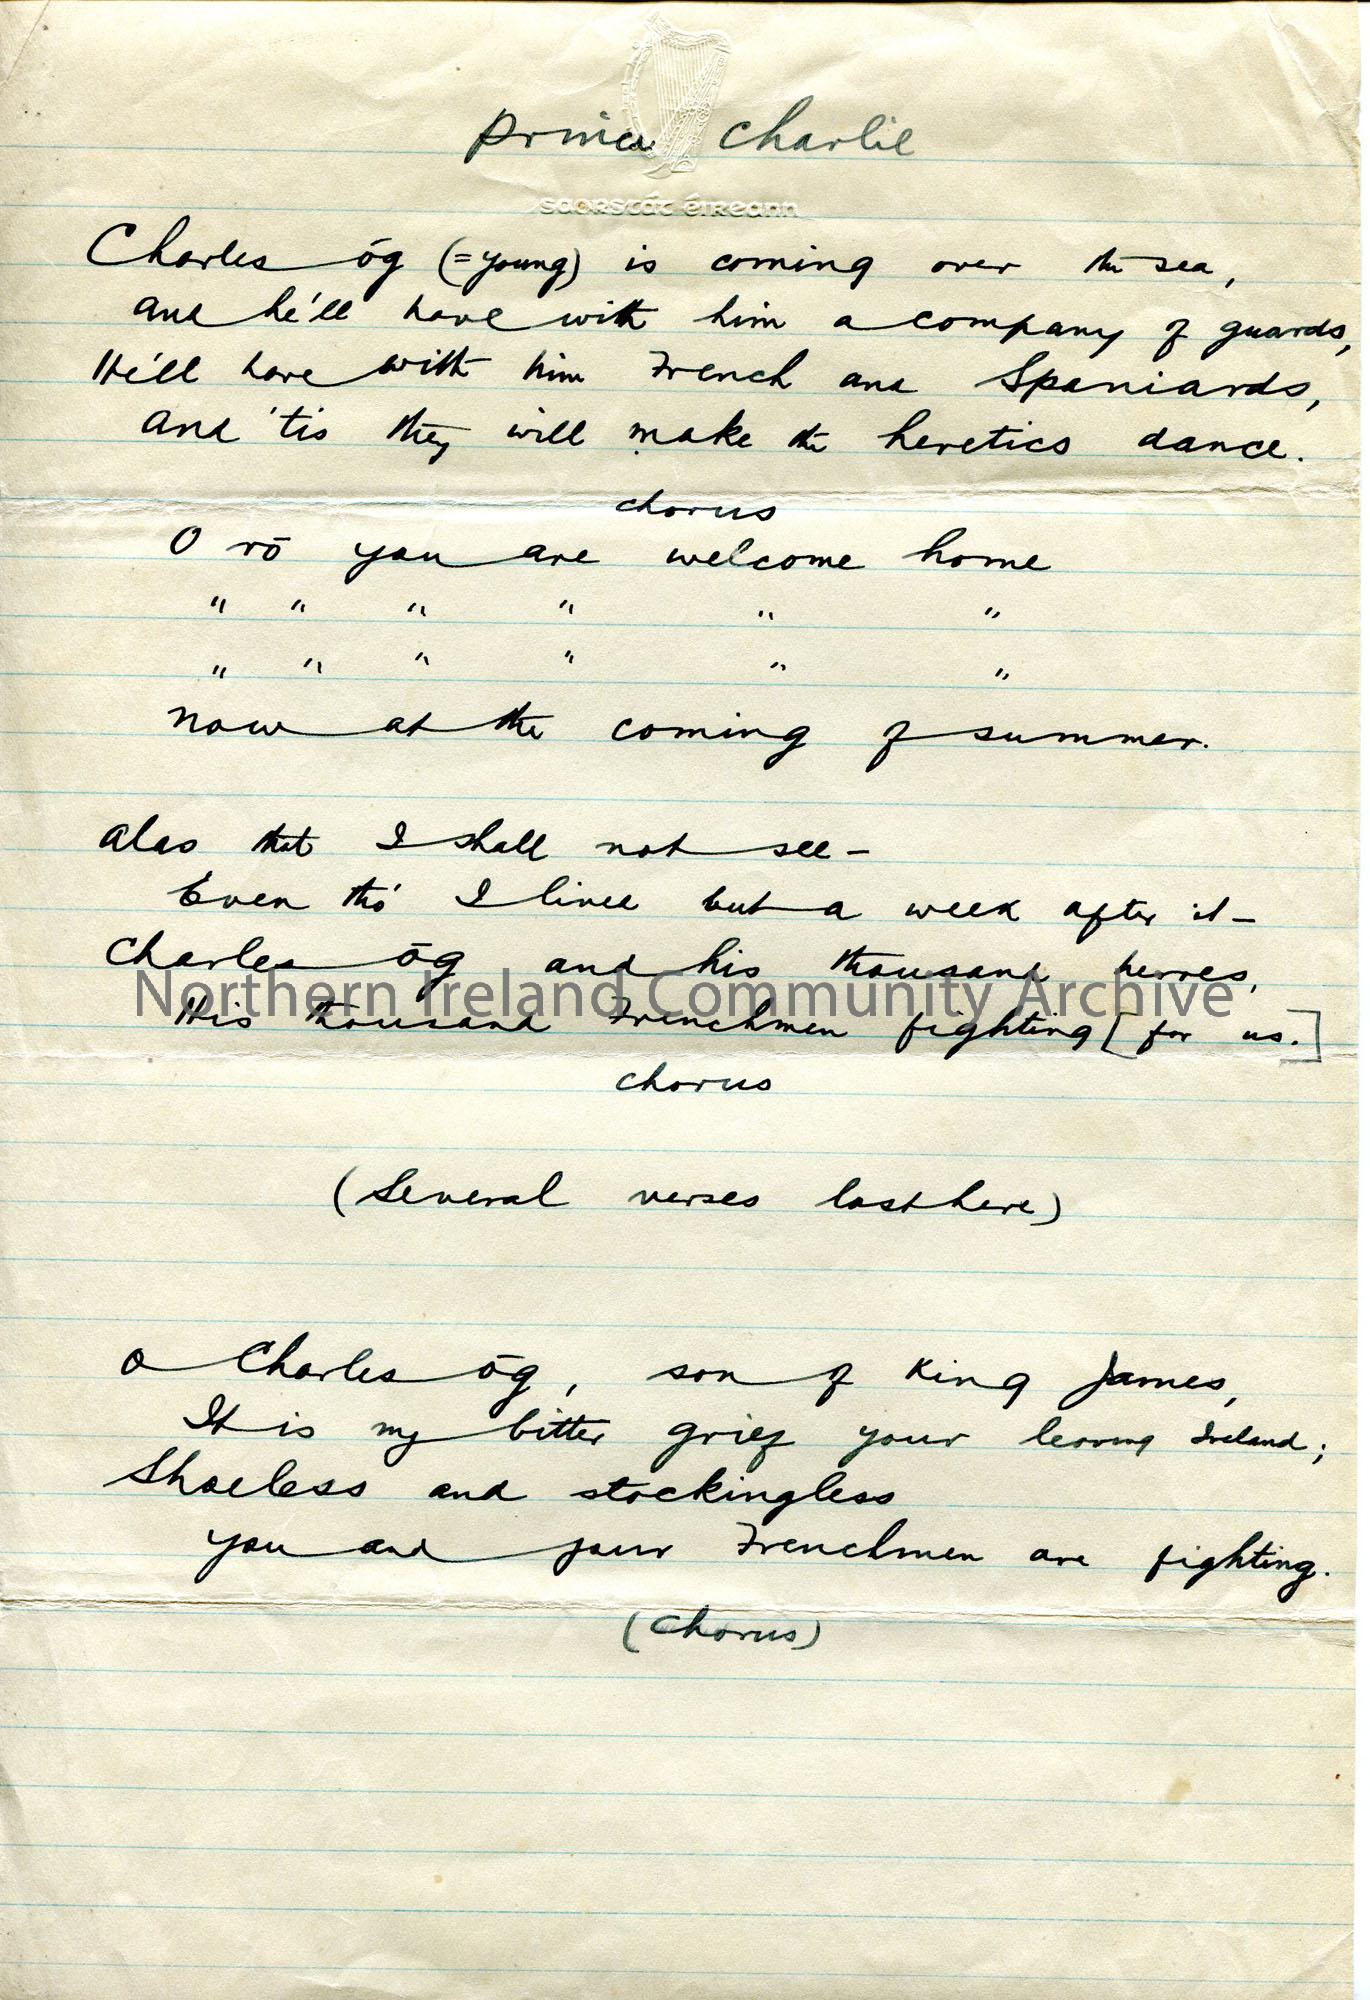 Prince Charlie
SAORSTÁT ÉIREANN
Charles óg (=young) is coming over the sea,
and he'll have with him a company of guards,
He'll have with him French and Spaniards,
and 'tis they will make the heretics dance.
chorus
O ró you are welcome home
" " " " " "
" " " " " "
now at the coming of summer.
alas that I shall not see –
Even tho' I live but a week after it –
Charles óg and his thousand heroes,
Northern Ireland Community Archive
His thousand Frenchmen fighting [for us.]
chorus
(Several verses lost here)
O Charles óg, son of King James,
It is my bitter grief your leaving Ireland;
Shoeless and stockingless
you and your Frenchmen are fighting.
(Chorus)